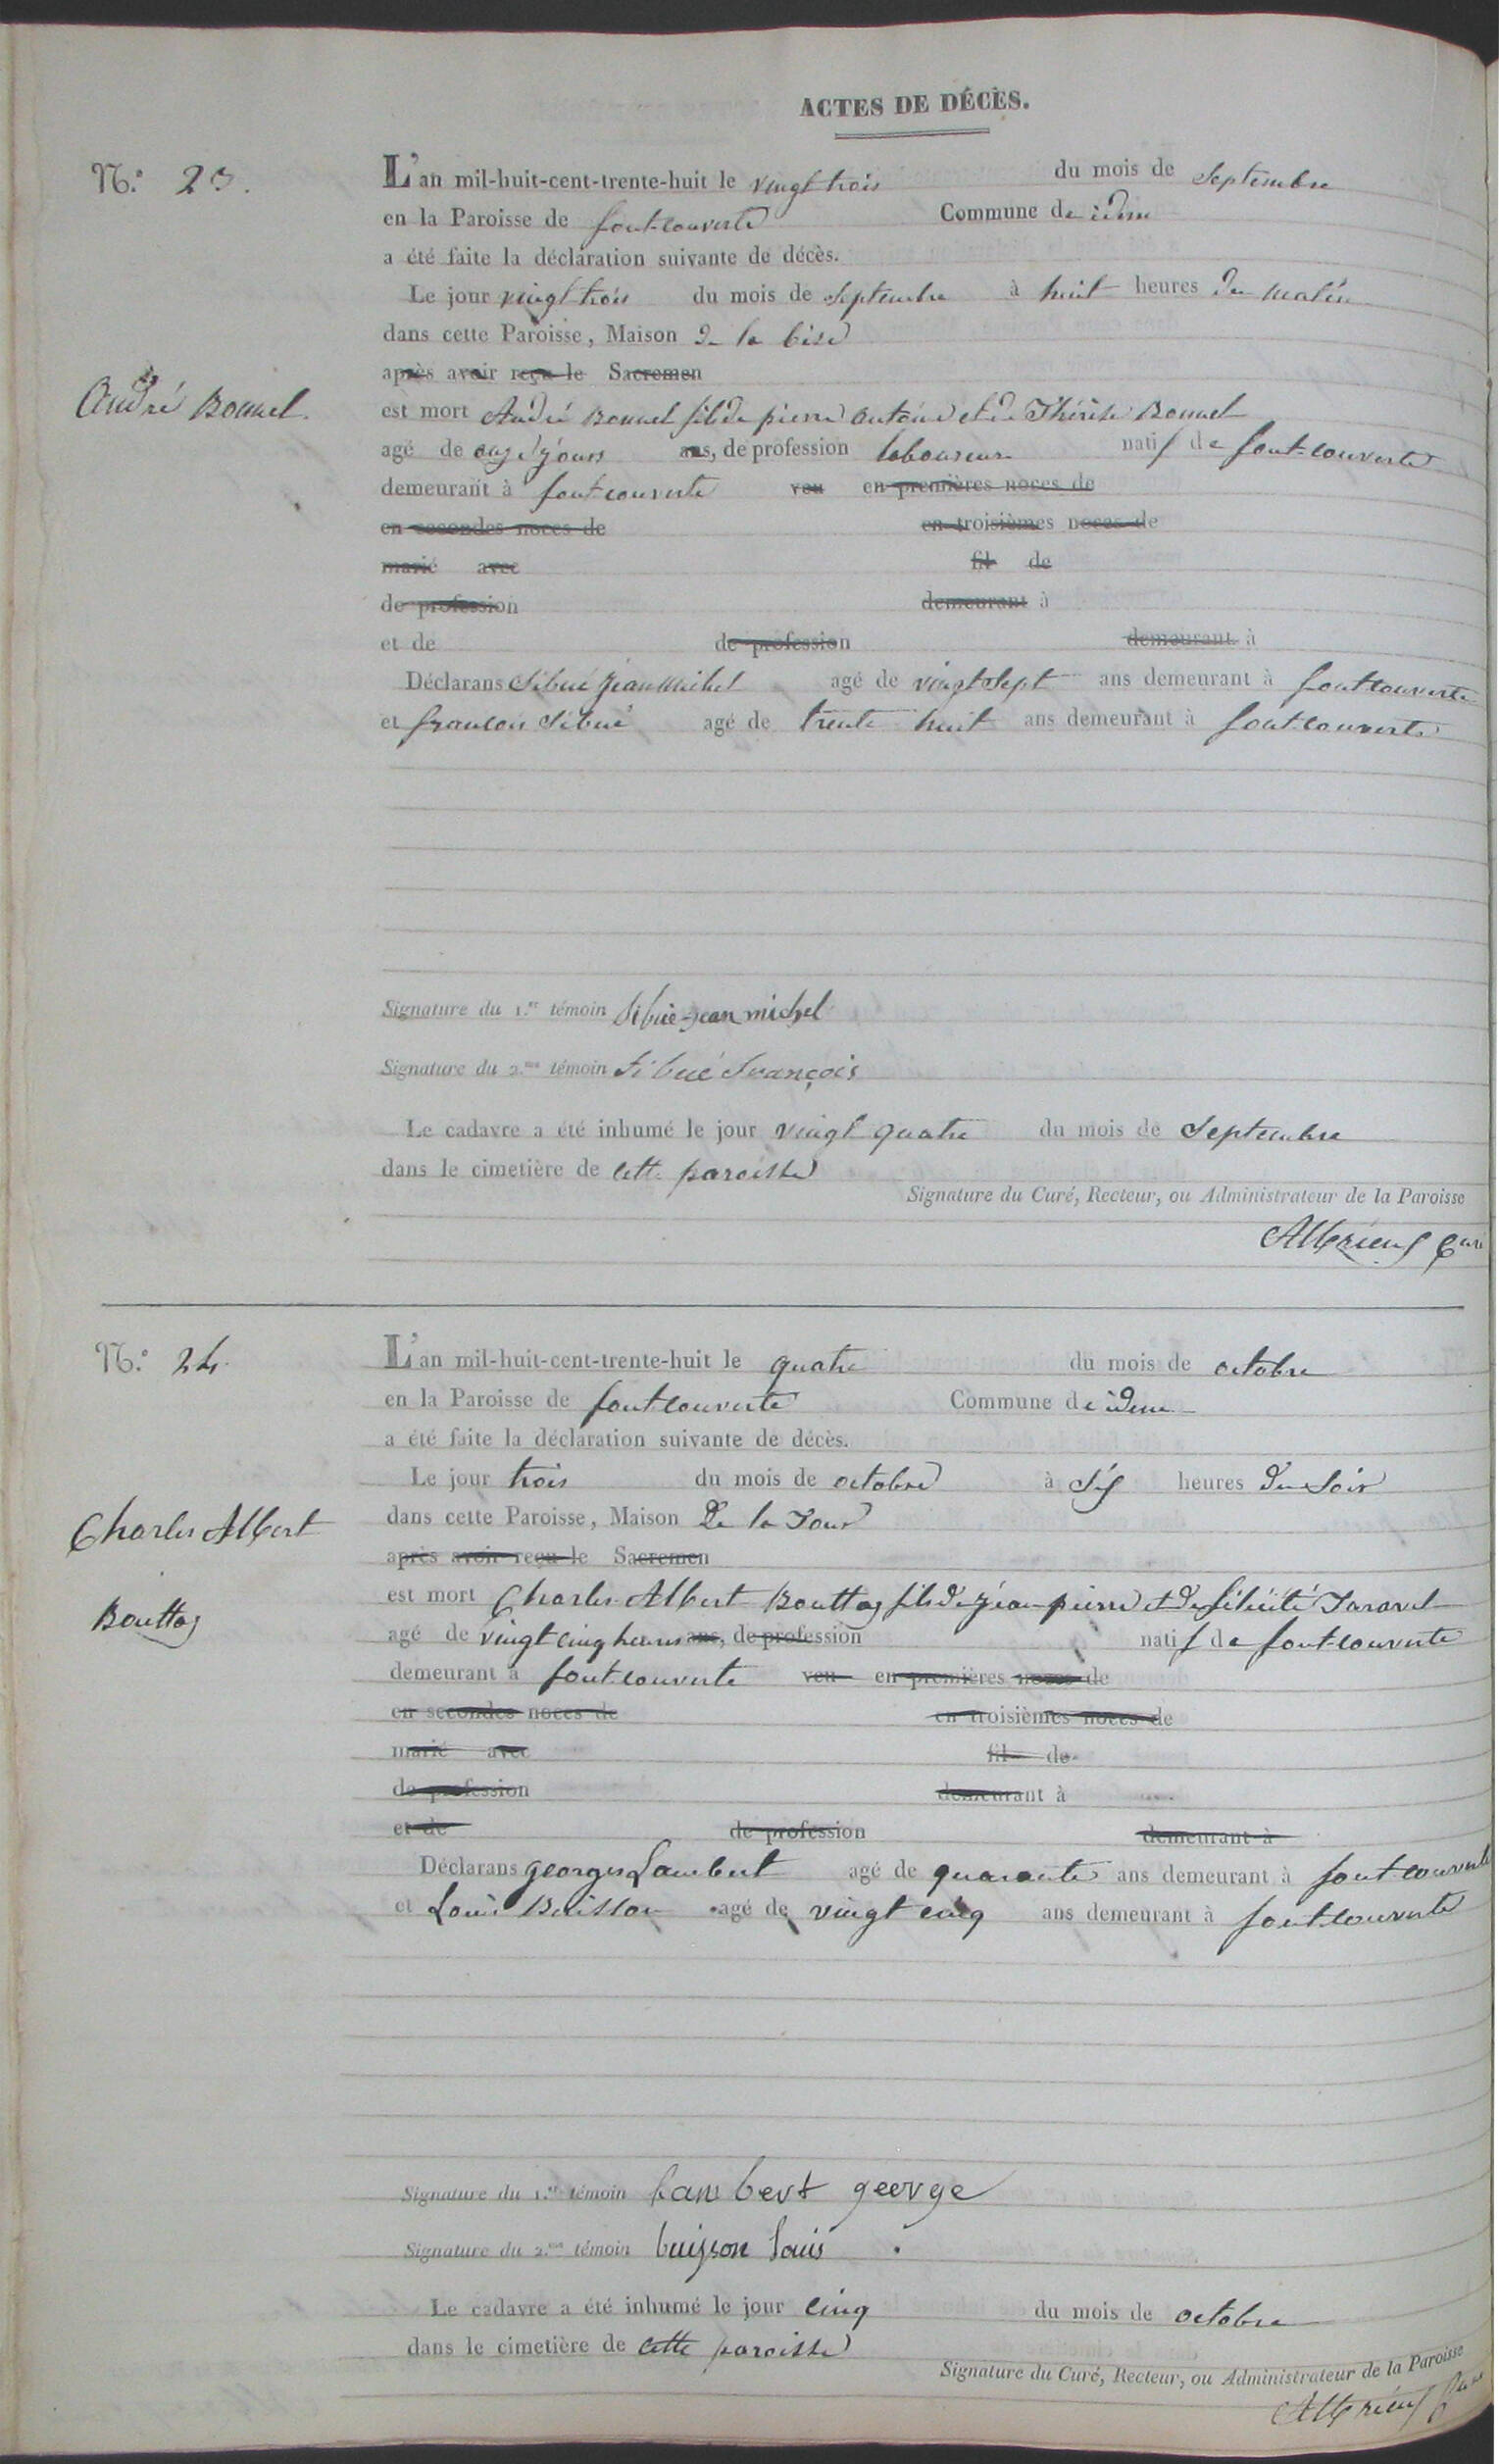 ACTES DE DÉCÈS.
N.º 23.
L'an mil-huit-cent-trente-huit le vingt trois du mois de Septembre
en la Paroisse de fontcouverte Commune de idem
a été faite la déclaration suivante de décès.
Le jour vingt trois du mois de Septembre à huit heures du matin
dans cette Paroisse, Maison de la bise
après avoir reçu le Sacremen
André Bonnel.
est mort André Bonnel fils de pierre antoine et de Thérèse Bonnel
agé de onze jours ans, de profession laboureur natif de fontcouverte
demeurant à fontcouverte veu en premières noces de
en secondes noces de en troisièmes noces de
marié avec fil de
de profession demeurant à
et de de profession demeurant à
Déclarans Sibué jean Michel agé de vingt sept ans demeurant à fontcouverte
et françois Sibué agé de trente huit ans demeurant à fontcouverte
Signature du 1.er témoin Sibué jean michel
Signature du 2.me témoin Sibué françois
Le cadavre a été inhumé le jour vingt quatre du mois de Septembre
dans le cimetière de cette paroisse
Signature du Curé, Recteur, ou Administrateur de la Paroisse
N.º 24.
L'an mil-huit-cent-trente-huit le quatre du mois de octobre
en la Paroisse de fontcouverte Commune de idem
a été faite la déclaration suivante de décès.
Le jour trois du mois de octobre à six heures du Soir
Charles Albert
dans cette Paroisse, Maison De la
après avoir reçu le Sacremen
Bouttaz
est mort Charles Albert Bouttaz fils de jean pierre et de félicité
agé de vingt cinq heures ans, de profession natif de fontcouverte
demeurant à fontcouverte veu en premières noces de
en secondes noces de en troisièmes noces de
marié avec fil de
de profession demeurant à
et de de profession demeurant à
Déclarans georges Lambert agé de quarante ans demeurant à fontcouverte
et Louis Buisson agé de vingt cinq ans demeurant à fontcouverte
Signature du 1.er témoin lambert george
Signature du 2.me témoin buisson louis
Le cadavre a été inhumé le jour cinq du mois de octobre
dans le cimetière de cette paroisse
Signature du Curé, Recteur, ou Administrateur de la Paroisse